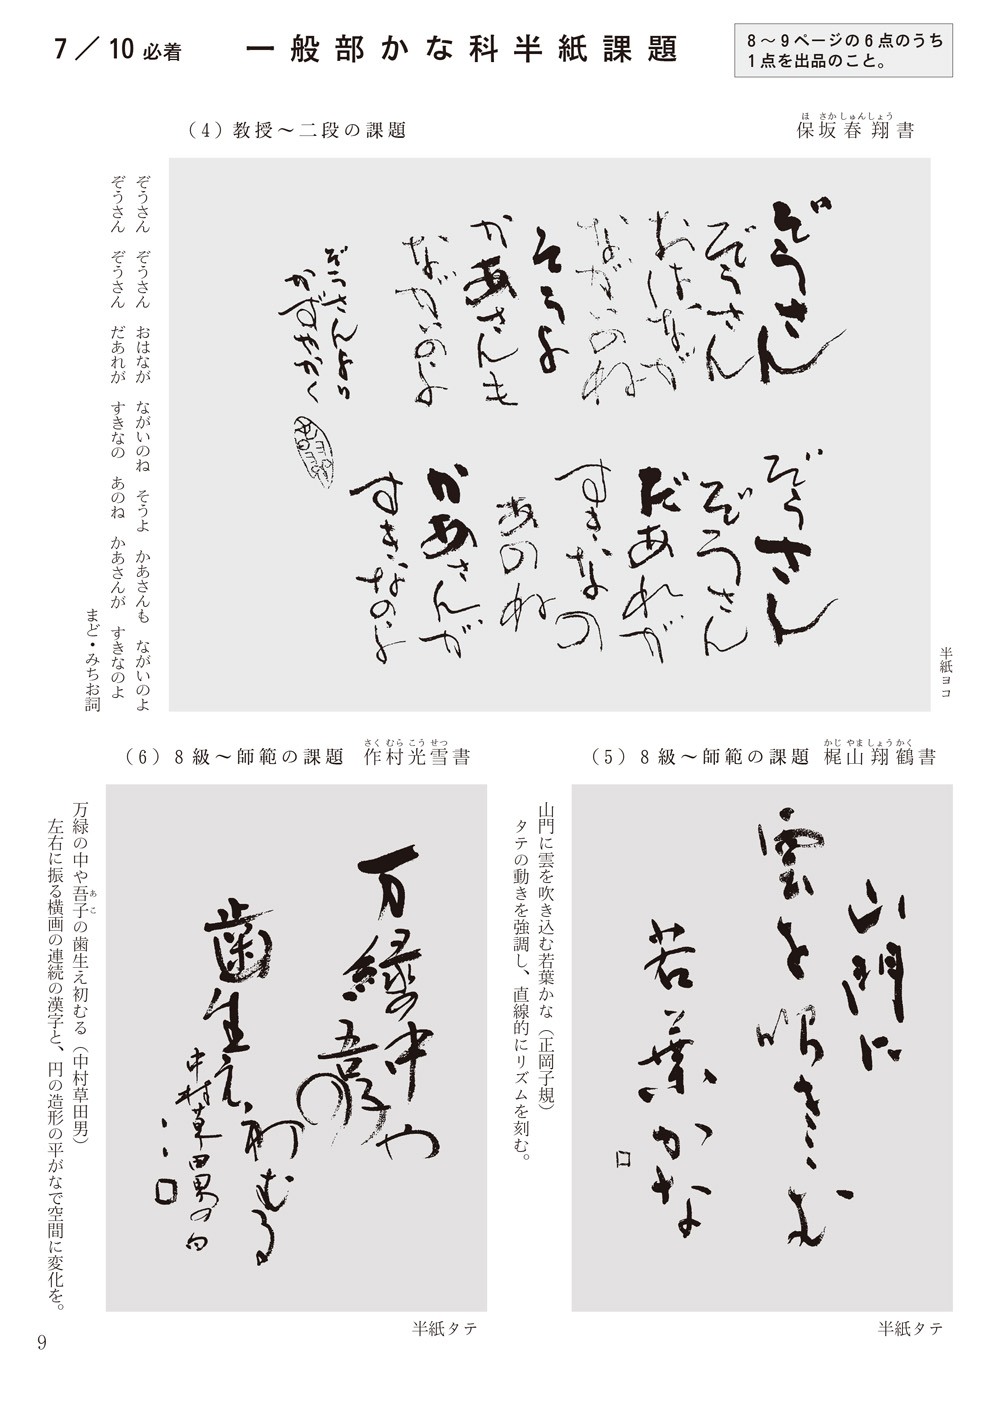 7／10必着
一般部かな科半紙課題
8～9ページの6点のうち
1点を出品のこと。
（4）教授～二段の課題
保坂春翔書
ほ さか しゅんしょう
ぞうさん
ぞうさん
おはなが
ながいのね
そうよ
かあさんも
ながいのよ
ぞうさん
ぞうさん
だあれが
すきなの
あのね
かあさんが
すきなのよ
ぞうさんより
かずやかく
半紙ヨコ
ぞうさん ぞうさん おはなが ながいのね そうよ かあさんも ながいのよ
ぞうさん ぞうさん だあれが すきなの あのね かあさんが すきなのよ
まど・みちお詞
（5）8級～師範の課題 梶山翔鶴書
かじ やま しょう かく
山門に
雲を吹きこむ
若葉かな
山門に雲を吹き込む若葉かな（正岡子規）
タテの動きを強調し、直線的にリズムを刻む。
半紙タテ
（6）8級～師範の課題 作村光雪書
さく むら こう せつ
万緑の中や
吾子の
歯生え初むる
中村草田男の句
万緑の中や吾子の歯生え初むる（中村草田男）
あこ
左右に振る横画の連続の漢字と、円の造形の平がなで空間に変化を。
半紙タテ
9